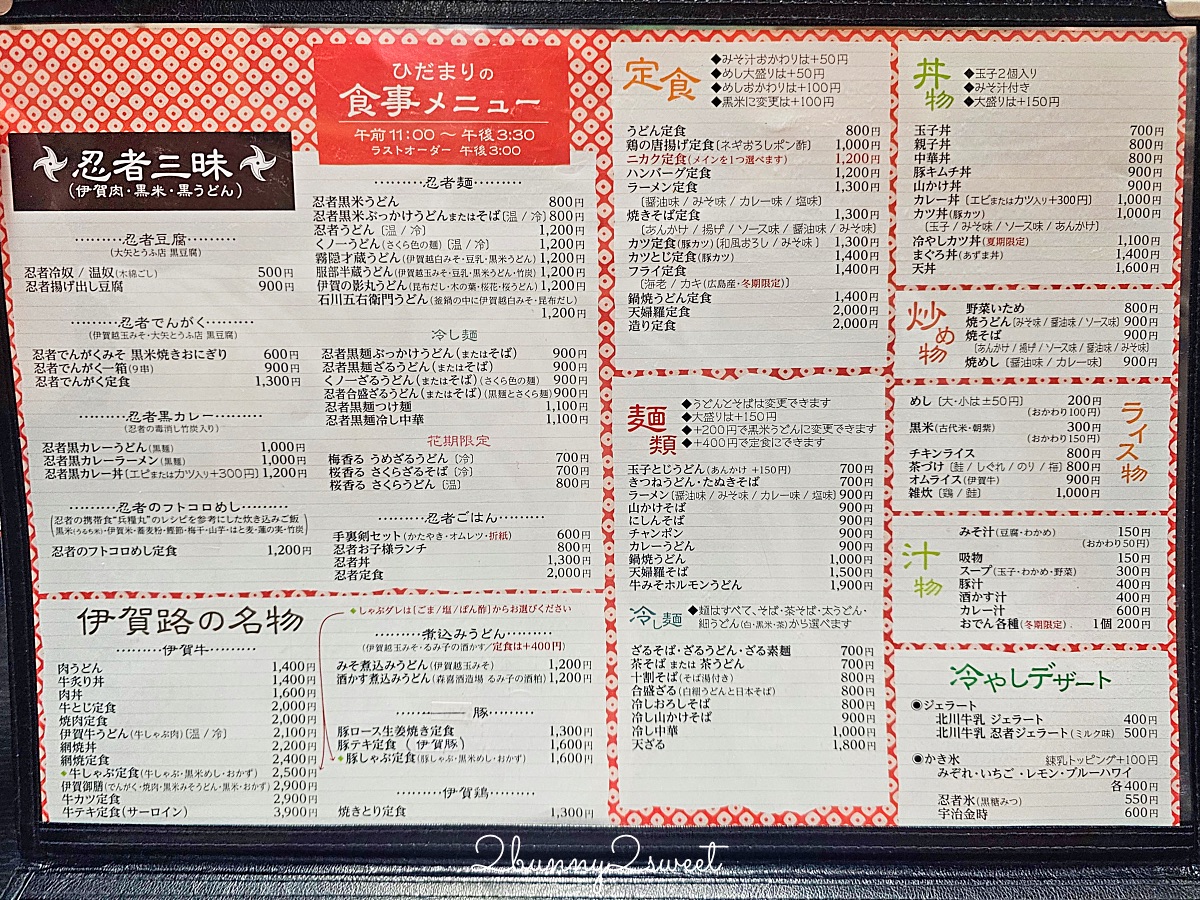 ひだまりの
食事メニュー
午前11:00 〜 午後3:30
ラストオーダー 午後3:00
忍者三昧
(伊賀肉・黒米・黒うどん)
………忍者豆腐………
(大矢とうふ店 黒豆腐)
忍者冷奴 / 温奴(木綿ごし) 500円
忍者揚げ出し豆腐 900円
………忍者でんがく………
(伊賀越玉みそ・大矢とうふ店 黒豆腐)
忍者でんがくみそ 黒米焼きおにぎり 600円
忍者でんがく一箱(9串) 900円
忍者でんがく定食 1,300円
………忍者黒カレー………
(忍者の毒消し竹炭入り)
忍者黒カレーうどん(黒麺) 1,000円
忍者黒カレーラーメン(黒麺) 1,000円
忍者黒カレー丼〔エビまたはカツ入り+300円〕 1,200円
………忍者のフトコロめし………
(忍者の携帯食“兵糧丸”のレシピを参考にした炊き込みご飯
黒米(うるち米)・伊賀米・蕎麦粉・鰹節・梅干・山芋・はと麦・蓮の実・竹炭)
忍者のフトコロめし定食 1,200円
………忍者麺………
忍者黒米うどん 800円
忍者黒米ぶっかけうどんまたはそば〔温 / 冷〕 800円
忍者うどん〔温 / 冷〕 1,200円
くノ一うどん(さくら色の麺)〔温 / 冷〕 1,200円
霧隠才蔵うどん(伊賀越白みそ・豆乳・黒米うどん) 1,200円
服部半蔵うどん(伊賀越玉みそ・豆乳・黒米うどん・竹炭) 1,200円
伊賀の影丸うどん(昆布だし・木の葉・桜花・桜うどん) 1,200円
石川五右衛門うどん(釜鍋の中に伊賀越白みそ・昆布だし)
1,200円
冷し麺
忍者黒麺ぶっかけうどん(またはそば) 900円
忍者黒麺ざるうどん(またはそば) 900円
くノ一ざるうどん(またはそば)(さくら色の麺) 900円
忍者合盛ざるうどん(またはそば)(黒麺とさくら麺) 900円
忍者黒麺つけ麺 1,100円
忍者黒麺冷し中華 1,100円
花期限定
梅香る うめざるうどん〔冷〕 700円
桜香る さくらざるそば〔冷〕 700円
桜香る さくらうどん〔温〕 800円
………忍者ごはん………
手裏剣セット(かたやき・オムレツ・折紙) 600円
忍者お子様ランチ 800円
忍者丼 1,300円
忍者定食 2,000円
伊賀路の名物
………伊賀牛………
肉うどん 1,400円
牛炙り丼 1,400円
肉丼 1,600円
牛とじ定食 2,000円
焼肉定食 2,000円
伊賀牛うどん(牛しゃぶ肉)〔温 / 冷〕 2,100円
網焼丼 2,200円
網焼定食 2,400円
◆牛しゃぶ定食(牛しゃぶ・黒米めし・おかず) 2,500円
伊賀御膳(でんがく・焼肉・黒米みそうどん・黒米・おかず) 2,900円
牛カツ定食 2,900円
牛テキ定食(サーロイン) 3,900円
◆しゃぶダレは〔ごま / 塩 / ぽん酢〕からお選びください
………煮込みうどん………
(伊賀越玉みそ・るみ子の酒かす/定食は+400円)
みそ煮込みうどん(伊賀越玉みそ) 1,200円
酒かす煮込みうどん(森喜酒造場 るみ子の酒粕) 1,200円
………豚………
豚ロース生姜焼き定食 1,300円
豚テキ定食 (伊賀豚) 1,600円
◆豚しゃぶ定食(豚しゃぶ・黒米めし・おかず) 1,600円
………伊賀鶏………
焼きとり定食 1,300円
定食
◆みそ汁おかわりは+50円
◆めし大盛りは+50円
◆めしおかわりは+100円
◆黒米に変更は+100円
うどん定食 800円
鶏の唐揚げ定食(ネギおろしポン酢) 1,000円
ニカク定食(メインを1つ選べます) 1,200円
ハンバーグ定食 1,200円
ラーメン定食 1,300円
〔醤油味 / みそ味 / カレー味 / 塩味〕
焼きそば定食 1,300円
〔あんかけ / 揚げ / ソース味 / 醤油味 / みそ味〕
カツ定食(豚カツ)〔和風おろし / みそ味〕 1,300円
カツとじ定食(豚カツ) 1,400円
フライ定食 1,400円
〔海老 / カキ(広島産・冬期限定)〕
鍋焼うどん定食 1,400円
天婦羅定食 2,000円
造り定食 2,000円
麺類
◆うどんとそばは変更できます
◆大盛りは+150円
◆+200円で黒米うどんに変更できます
◆+400円で定食にできます
玉子とじうどん(あんかけ +150円) 700円
きつねうどん・たぬきそば 700円
ラーメン〔醤油味 / みそ味 / カレー味 / 塩味〕 900円
山かけそば 900円
にしんそば 900円
チャンポン 900円
カレーうどん 900円
鍋焼うどん 1,000円
天婦羅そば 1,500円
牛みそホルモンうどん 1,900円
冷し麺
◆麺はすべて、そば・茶そば・太うどん・
細うどん(白・黒米・茶)から選べます
ざるそば・ざるうどん・ざる素麺 700円
茶そば または 茶うどん 700円
十割そば(そば湯付き) 800円
合盛ざる(白細うどんと日本そば) 800円
冷しおろしそば 800円
冷し山かけそば 900円
冷し中華 1,000円
天ざる 1,800円
丼物
◆玉子2個入り
◆みそ汁付き
◆大盛りは+150円
玉子丼 700円
親子丼 800円
中華丼 800円
豚キムチ丼 900円
山かけ丼 900円
カレー丼〔エビまたはカツ入り+300円〕 1,000円
カツ丼(豚カツ) 1,000円
〔玉子 / みそ味 / ソース味 / あんかけ〕
冷やしカツ丼(夏期限定) 1,100円
まぐろ丼(あずま丼) 1,400円
天丼 1,600円
炒め物
野菜いため 800円
焼うどん〔みそ味 / 醤油味 / ソース味〕 900円
焼そば 900円
〔あんかけ / 揚げ / ソース味 / 醤油味 / みそ味〕
焼めし〔醤油味 / カレー味〕 900円
ライス物
めし〔大・小は±50円〕 200円
(おかわり100円)
黒米(古代米・朝紫) 300円
(おかわり150円)
チキンライス 800円
茶づけ〔鮭 / しぐれ / のり / 梅〕 800円
オムライス(伊賀牛) 900円
雑炊〔鶏 / 鮭〕 1,000円
汁物
みそ汁(豆腐・わかめ) 150円
(おかわり50円)
吸物 150円
スープ(玉子・わかめ・野菜) 300円
豚汁 400円
酒かす汁 400円
カレー汁 600円
おでん各種(冬期限定) 1個 200円
冷やしデザート
◉ジェラート
北川牛乳 ジェラート 400円
北川牛乳 忍者ジェラート(ミルク味) 500円
◉かき氷 練乳トッピング+100円
みぞれ・いちご・レモン・ブルーハワイ
各400円
忍者氷(黒糖みつ) 550円
宇治金時 600円
2bunny2sweet